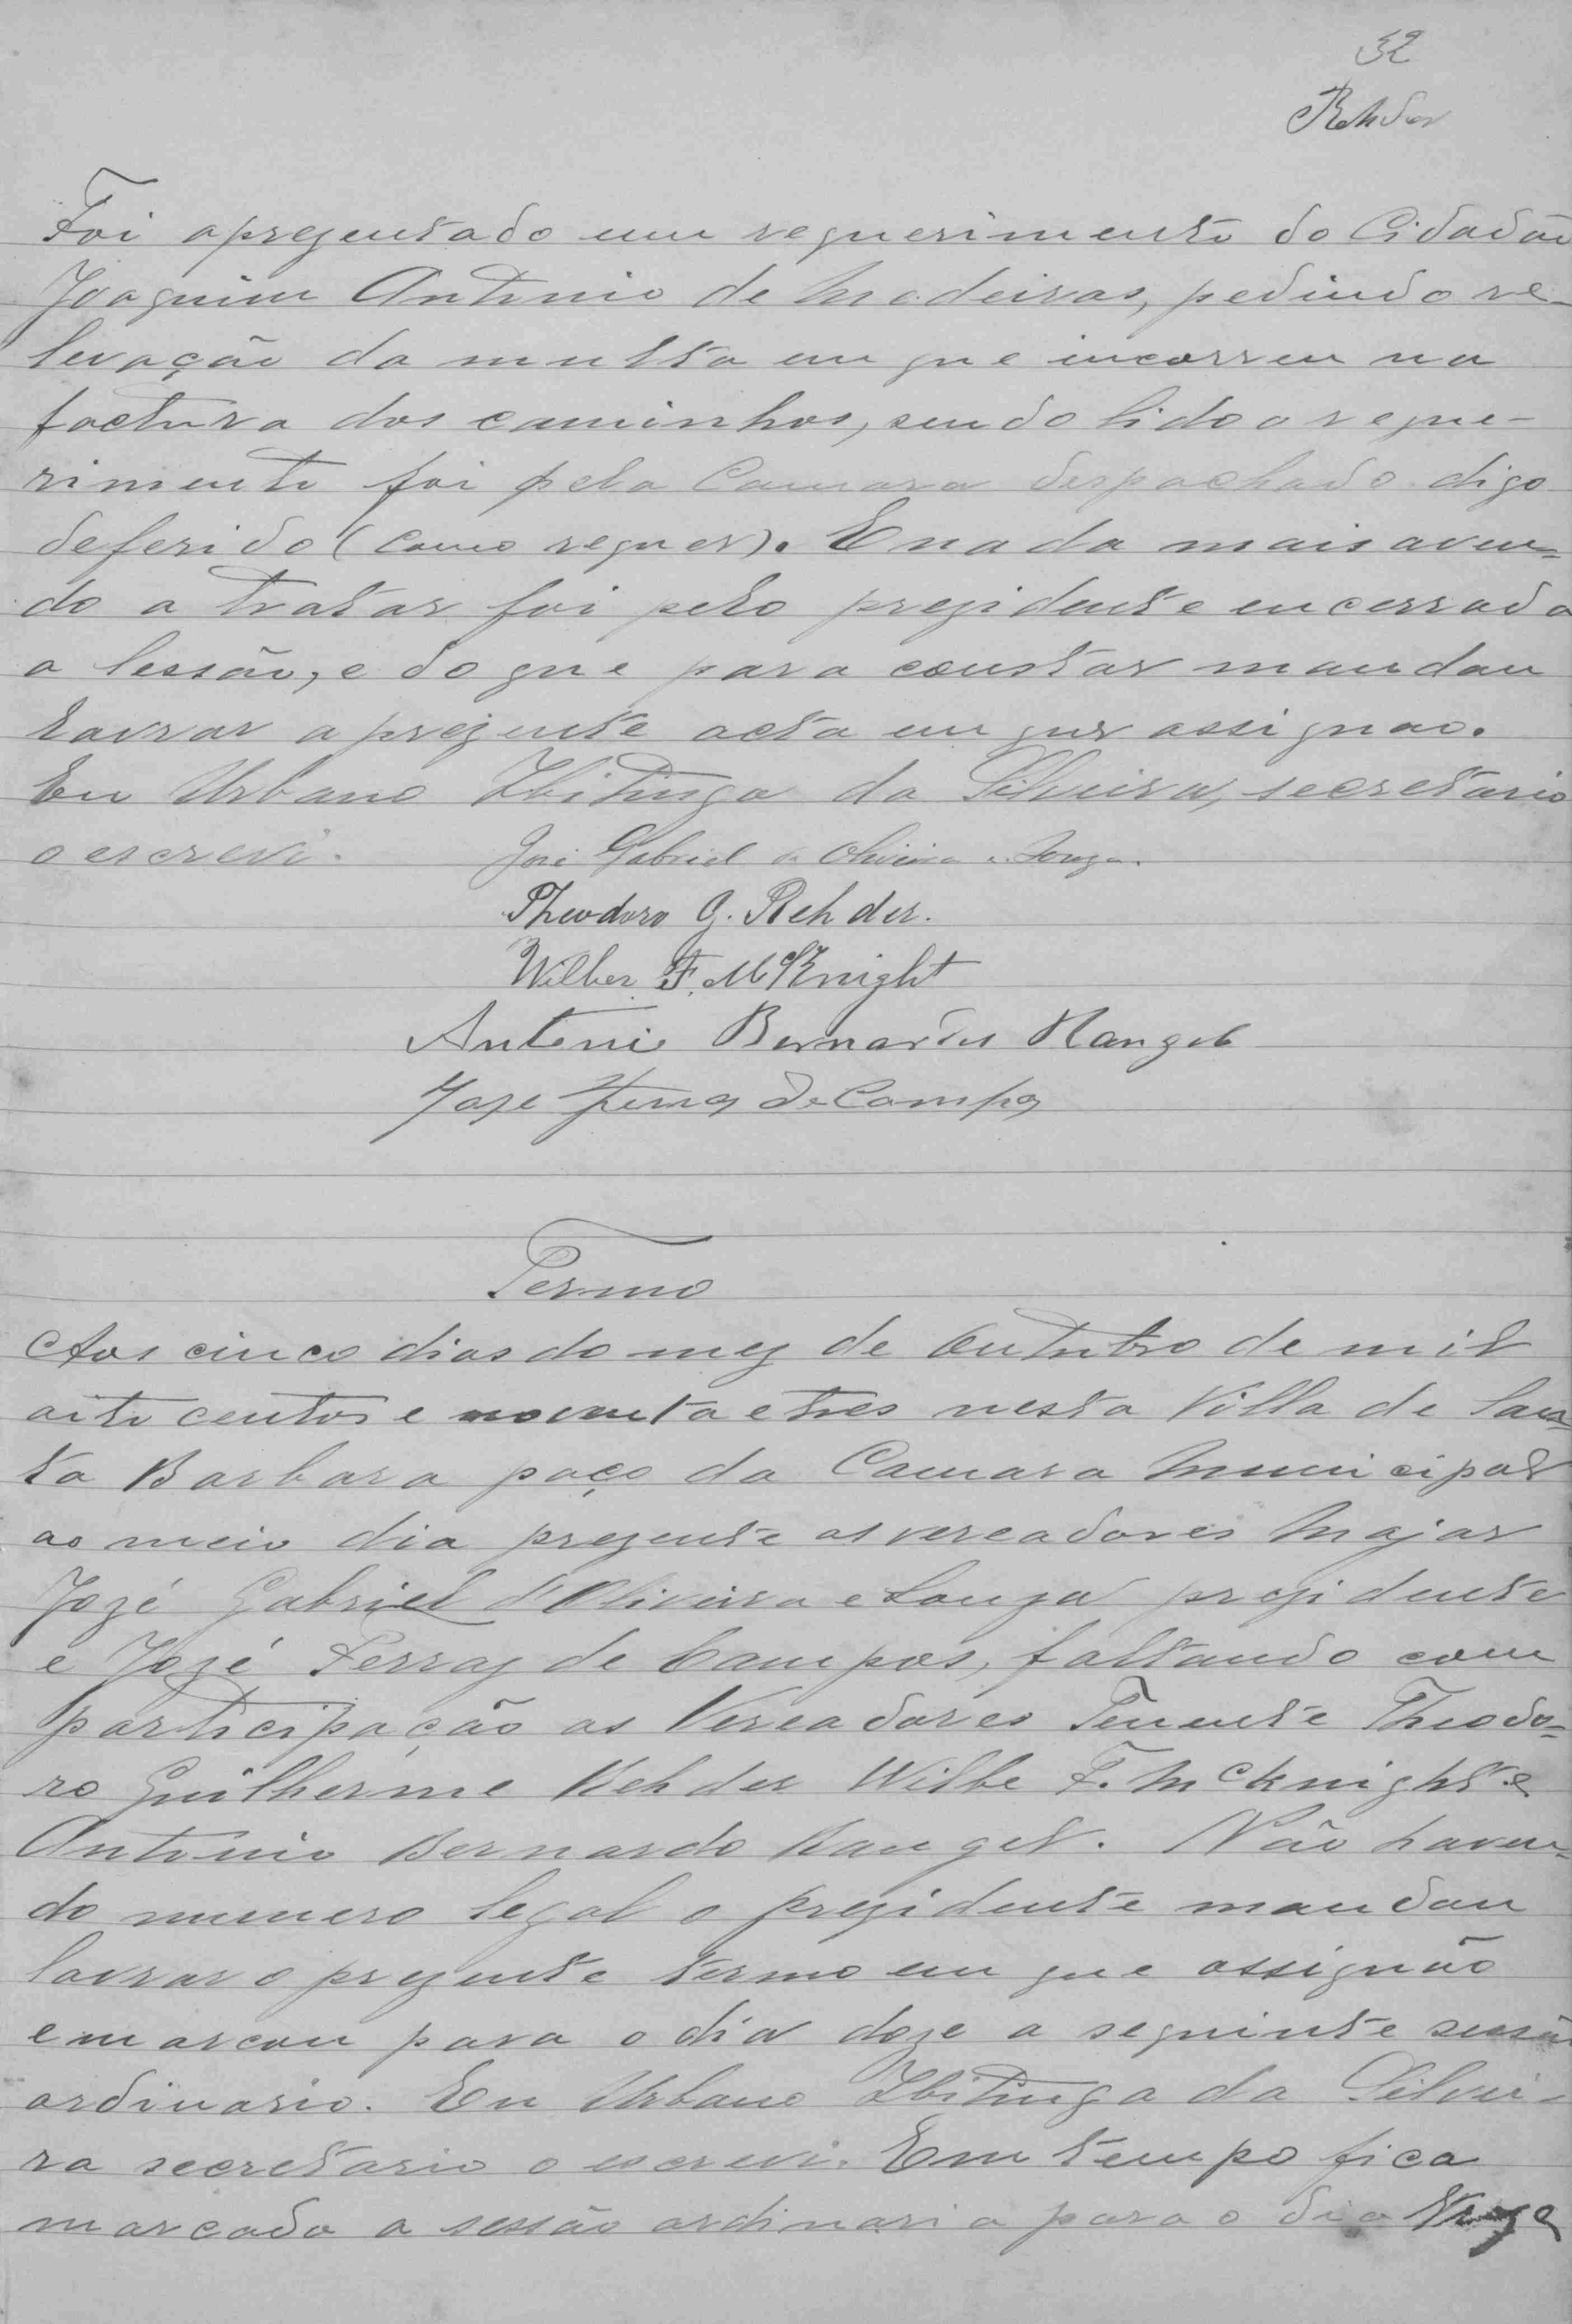 32
Rehder
Foi aprezentado um requerimento do Cidadão
Joaquim Antonio de Madeiras, pedindo re-
levação da multa em que incorreu na
factura dos caminhos, sendo lido o reque-
rimento foi pela Camara despachado digo
deferido (como requer). E nada mais aven-
do a tratar foi pelo prezidente encerrada
a Sessão, e do que para constar mandou
lavrar a prezente acta em que assignão.
Eu Urbano Ibitinga da Silveira, secretario
o escrevi.
José Gabriel de Oliveira e Souza.
Theodoro G. Rehder.
Wilber F. McKnight
Antonio Bernardes Rangel
Joze Ferraz de Campos
Termo
Aos cinco dias do mez de Outubro de mil
oito centos e noventa e tres nesta Villa de San-
ta Barbara paço da Camara Municipal
ao meio dia prezente os vereadores Major
Jozé Gabriel d'Oliveira e Souza prezidente
e Jozé Ferraz de Campos, faltando com
participação os Vereadores Tenente Theodo-
ro Guilherme Rehder Wilbe F. McKnight e
Antonio Bernardo Rangel. Não haven-
do numero legal o prezidente mandou
lavrar o prezente termo em que assignão
e marcou para o dia doze a seguinte sessão
ordinario. Eu Urbano Ibitinga da Silvei-
ra secretario o escrevi. Em tempo fica
marcado a sessão ordinaria para o dia